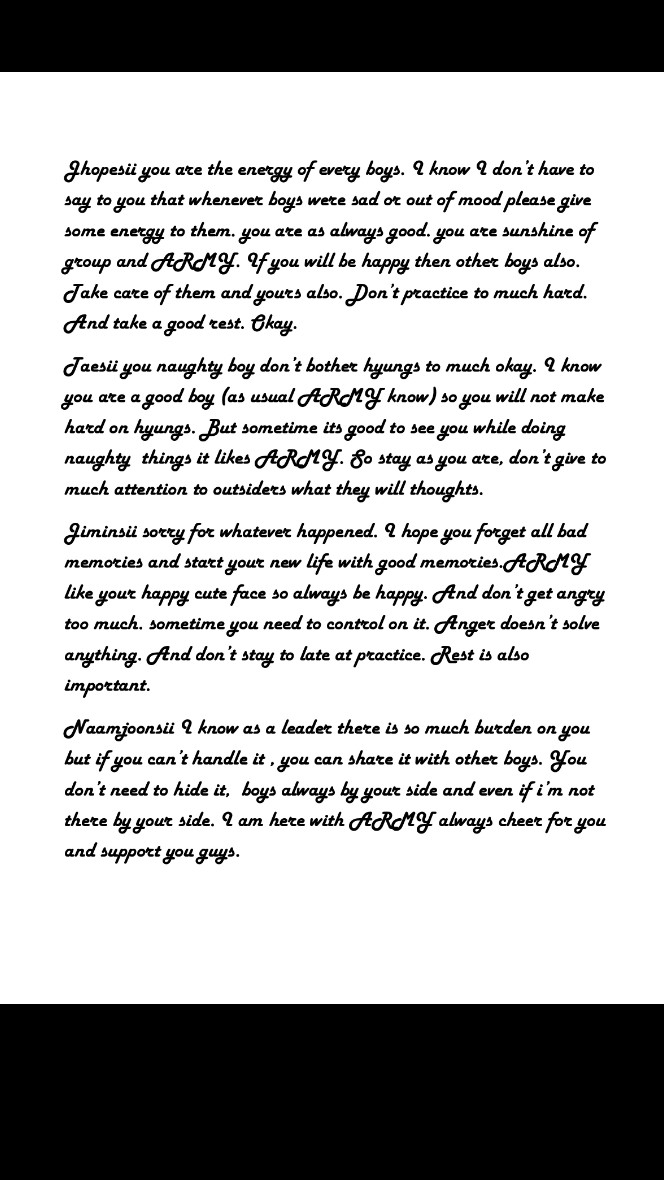 Jhopesii you are the energy of every boys. I know I don't have to
say to you that whenever boys were sad or out of mood please give
some energy to them. you are as always good. you are sunshine of
group and ARMY. If you will be happy then other boys also.
Take care of them and yours also. Don't practice to much hard.
And take a good rest. Okay.
Taesii you naughty boy don't bother hyungs to much okay. I know
you are a good boy (as usual ARMY know) so you will not make
hard on hyungs. But sometime its good to see you while doing
naughty  things it likes ARMY. So stay as you are, don't give to
much attention to outsiders what they will thoughts.
Jiminsii sorry for whatever happened. I hope you forget all bad
memories and start your new life with good memories.ARMY
like your happy cute face so always be happy. And don't get angry
too much. sometime you need to control on it. Anger doesn't solve
anything. And don't stay to late at practice. Rest is also
important.
Naamjoonsii I know as a leader there is so much burden on you
but if you can't handle it , you can share it with other boys. You
don't need to hide it,  boys always by your side and even if i'm not
there by your side. I am here with ARMY always cheer for you
and support you guys.